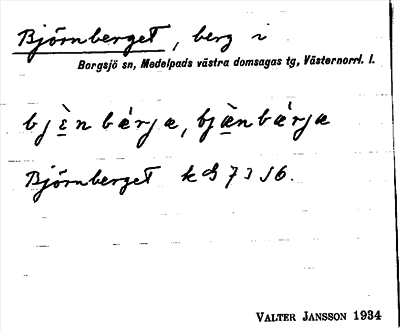 Björnberget, berg i
Borgsjö sn, Medelpads västra domsagas tg, Västernorrl. l.
bjὲnbǽrjæ, bjæ̀nbǽrjæ
Björnberget
Valter Jansson 1934